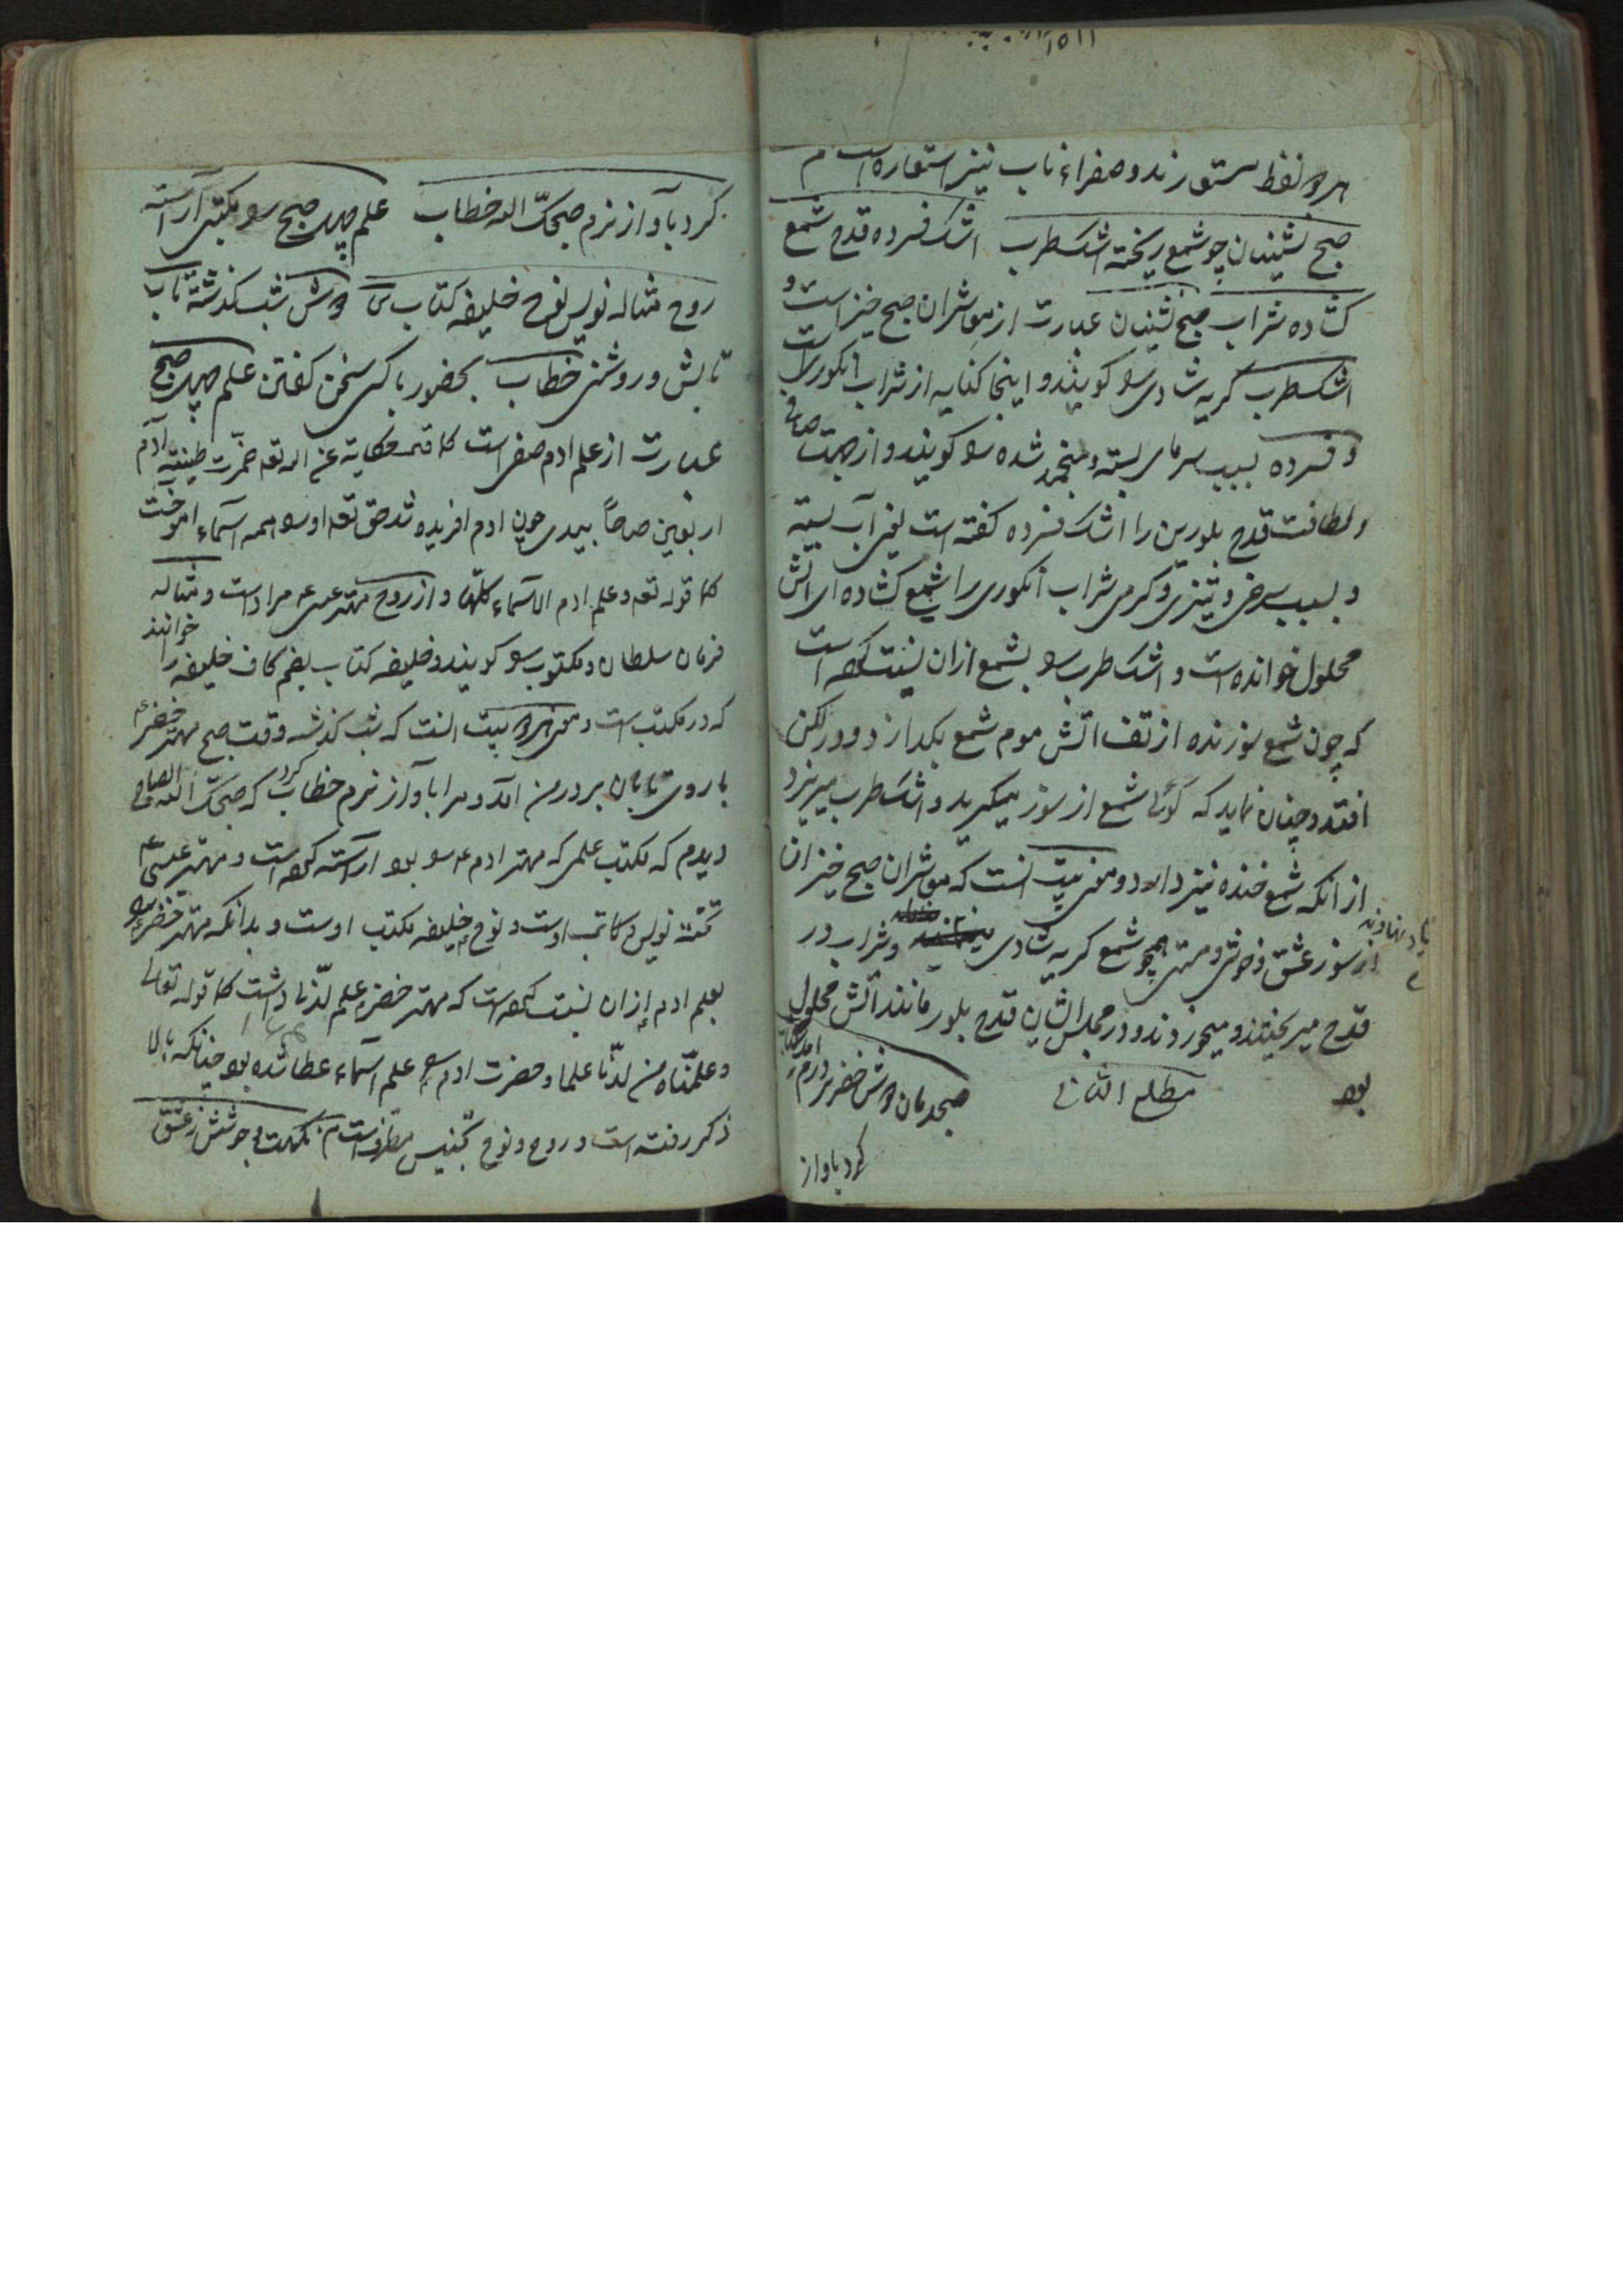 هر دو لفظ ستور زند و صفراء ناب نیز استعاره است م
صبح نشینان چو شمع ریخته اشک طرب اشک فسرده قدح شمع
کشاده شراب صبح نشینان عبارت از میوشران صبح خیز است و
اشک طرب کریه شادی را کویند و اینجا کنایه از شراب انکوری است
و فسرده بسبب سرمای بسته و منجمد شده را کویند و از جهت صافی
و لطافت قدح بلورین را اشک فسرده کفته است یعنی آب بسته
و بسبب سرخی و تیزی و کرمی شراب انکوری را شمع کشاده ای آتش
محلول خوانده است و اشک طرب را بشمع ازان نسبت کرده است
که چون شمع سوزنده از تف اتش موم شمع بکدازد و در لکن
افتد و چنان نماید که کوئی شمع از سوز میکرید و اشک طرب میریزد
از انکه شمع خنده نیز دارد و معنی بیت انست که میوشران صبح خیزان
از سوز عشق و خوشی و مستی همچو شمع کریه شادی و شراب در
قدح میریختند و میخوردند و در مجلس ایشان قدح بلور مانند آتش محلول
بود مطلع الثانی صبحدمان دوش خضر بر درم آمد
کرد باواز
کرد بآواز نرم صبحک الله خطاب علم چهل صبح را مکتبی آراسته
روح مثاله نویس نوح خلیفه کتاب ش دوش شب کذشته تاب
تابش و روشنی خطاب بحضور با کسی سخن کفتن علم چهل صبح
عبارت از علم ادم صفی است کما قیل حکایة عن الله تعه خمرت طینة آدم
اربعین صباحاً بیدی چون ادم افریده شد حق تعه او را همه اسماء اموخت
کما قوله تعه و علم ادم الاسماء کلها و از روح مهتر عیسی مراد است و مثاله
فرمان سلطان و مکتوب را کویند و خلیفه کتاب بضم کاف خلیفه را خوانند
که در مکتب است و معنی هر دو بیت انست که شب کذشته وقت صبح مهتر خضر
با روی تابان بر در من امد و مرا باواز نرم خطاب کرد که صبحک الله
دیدم که مکتب علمی که مهتر ادم را بود اراسته کرده است و مهتر عیسی
تخته نویس و کاتب اوست و نوح خلیفه مکتب اوست و بدانکه مهتر خضر را
بعلم ادم ازان نسبت کرده است که مهتر خضر علم لدنا داشت کما قوله تعالی
و علمناه من لدنا علما و حضرت ادم را علم اسماء عطا شده بود چنانکه بالا
ذکر رفته است و روح و نوح تجنیس مطرف است م نکهت جوشش ز عشق